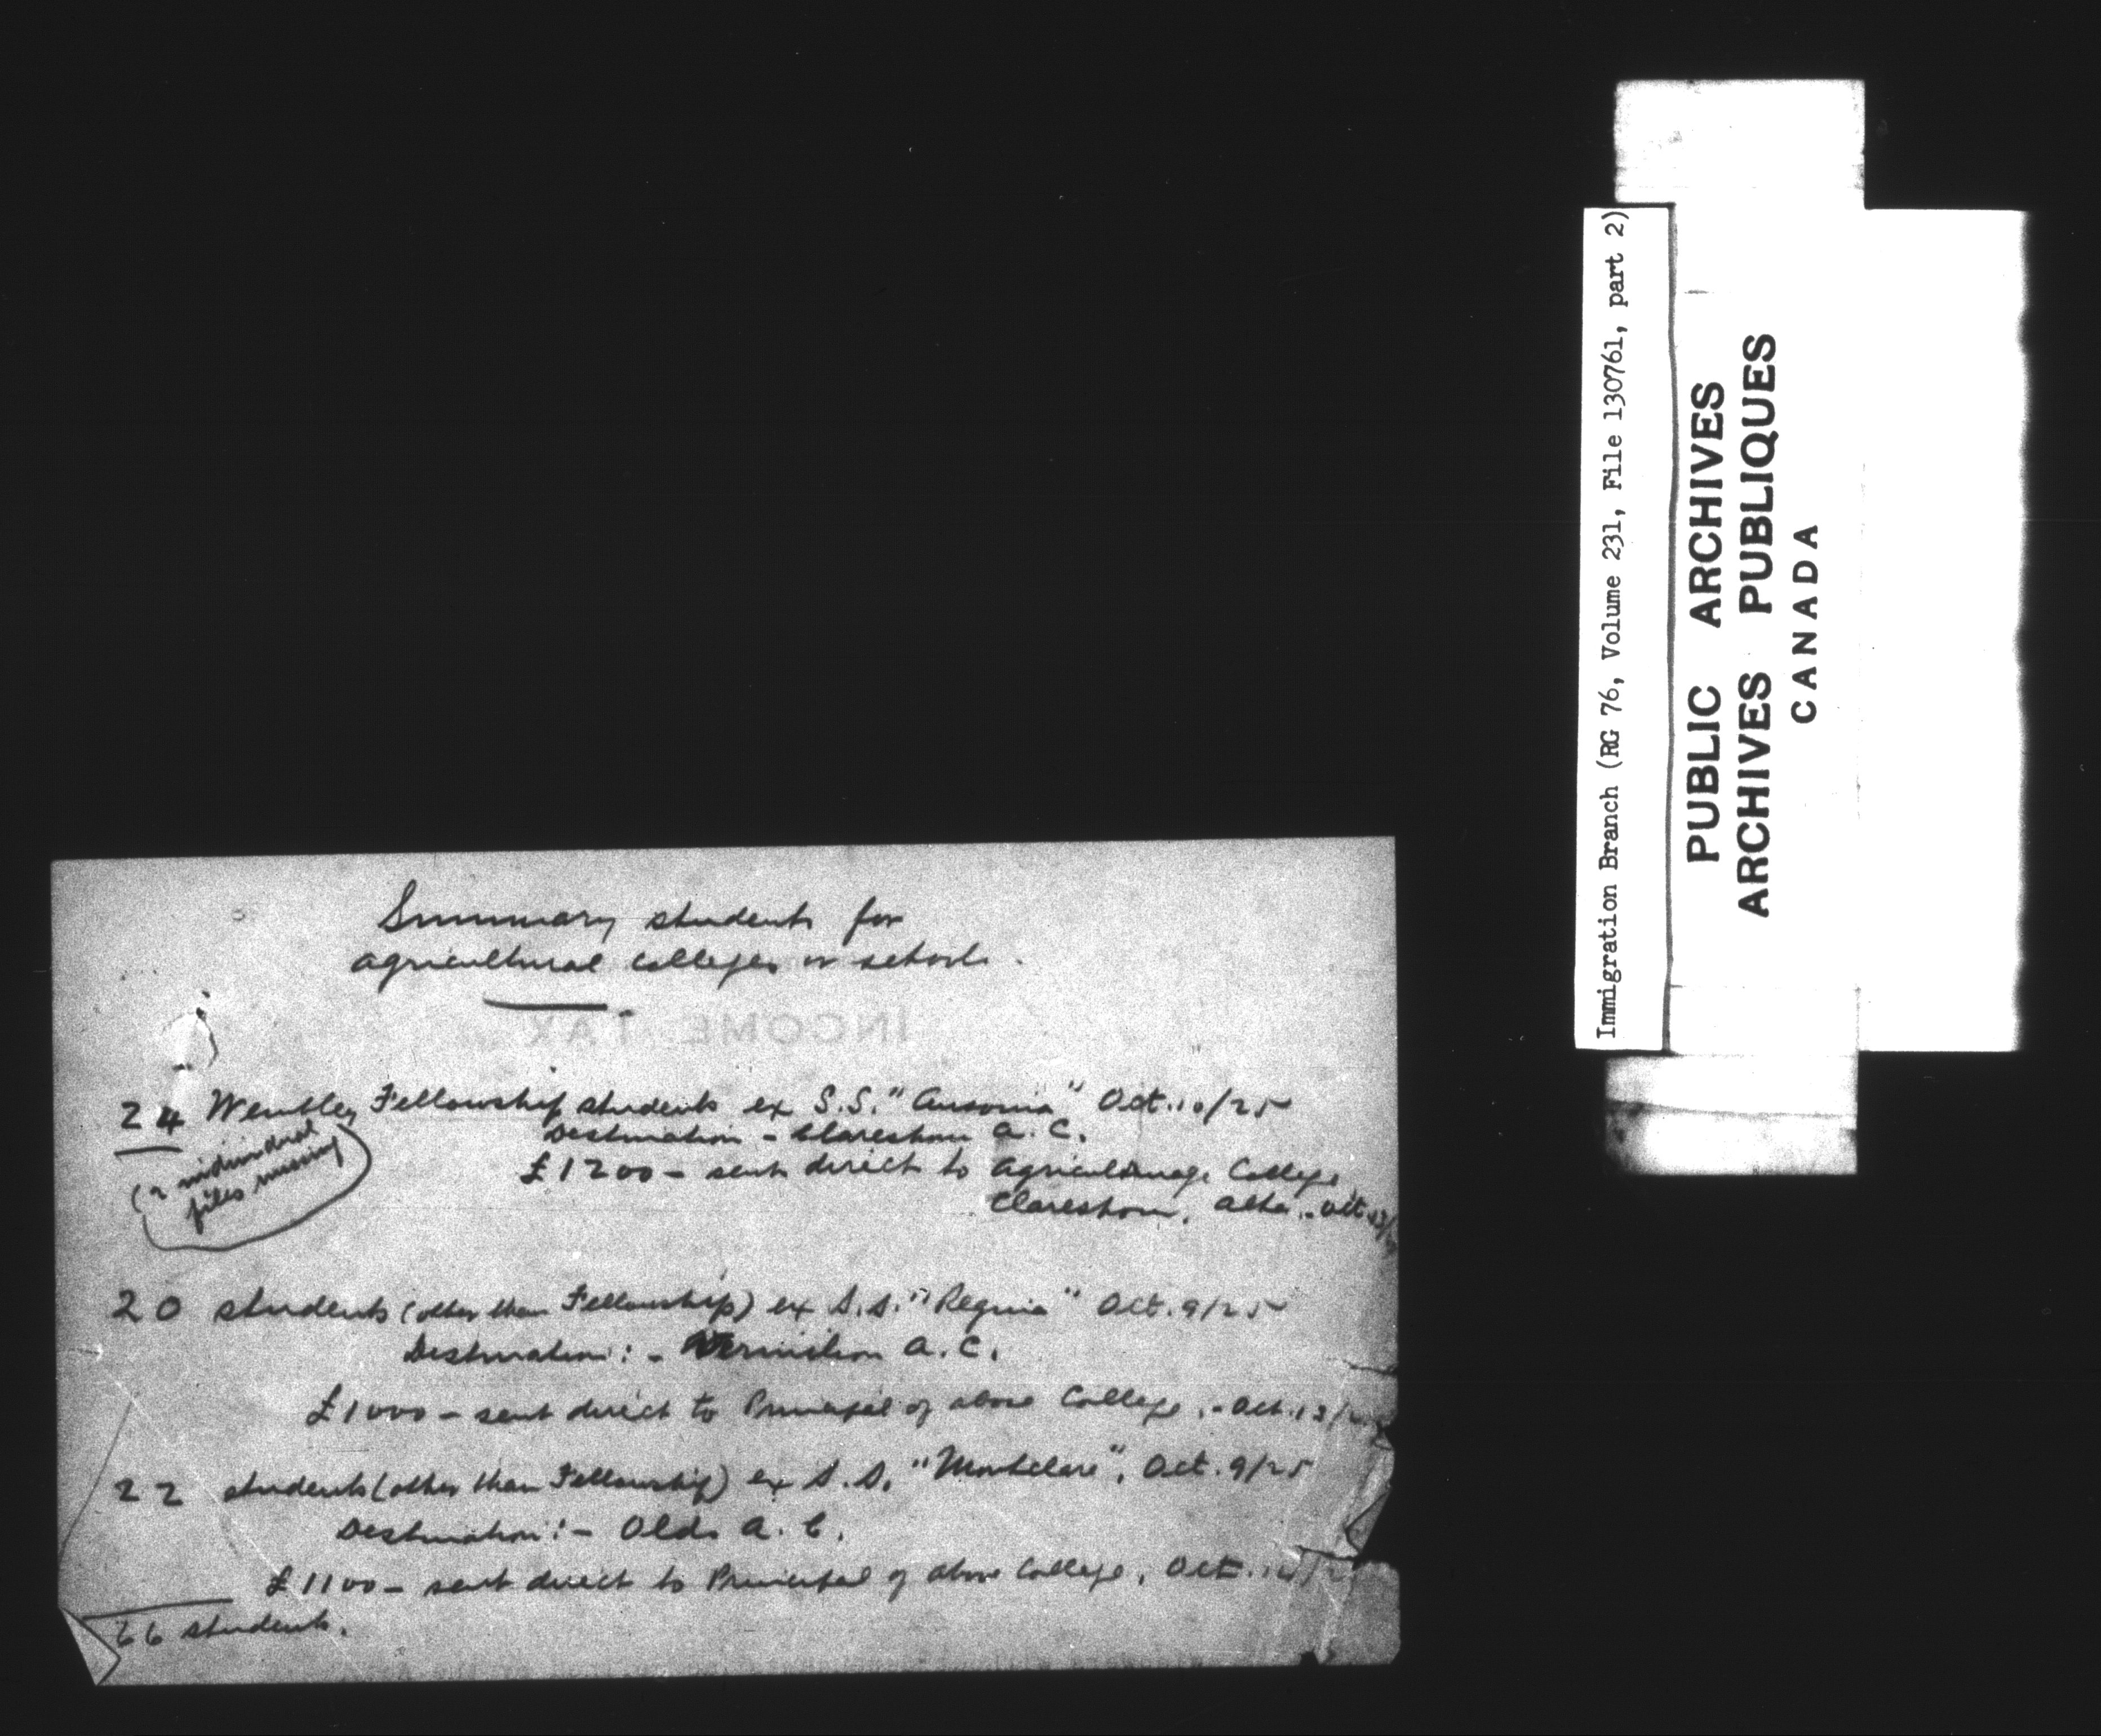 Summary students for
agricultural colleges or schools.
INCOME TAX
24 Wembley Fellowship students ex S.S. "Ausonia" Oct. 10/25
Destination - Claresholm A.C.
(2 individual
files missing)
£1200 - sent direct to Agricultural College
Claresholm, Alta. - Oct. 13/
20 students (other than Fellowship) ex S.S. "Regina" Oct. 9/25
Destination: - Vermilion A.C.
£1000 - sent direct to Principal of above College, - Oct. 13/
22 students (other than Fellowship) ex S.S. "Montclare", Oct. 9/25
Destination: - Olds A.C.
£1100 - sent direct to Principal of above College, Oct.
66 students.
Immigration Branch (RG 76, Volume 231, File 130761, part 2)
PUBLIC ARCHIVES
ARCHIVES PUBLIQUES
CANADA